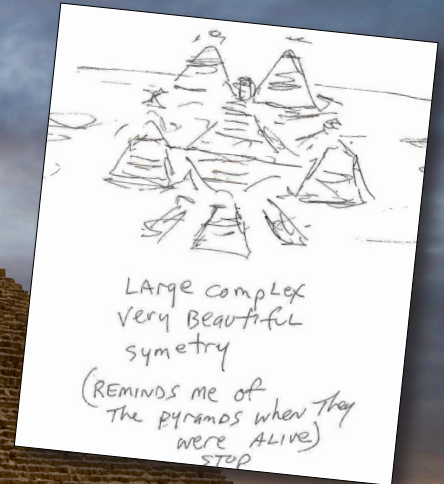 LArge compLex
very BeautifuL
symetry
(REMINDS me of
The pyramDs when They
were ALIVE)
STOP